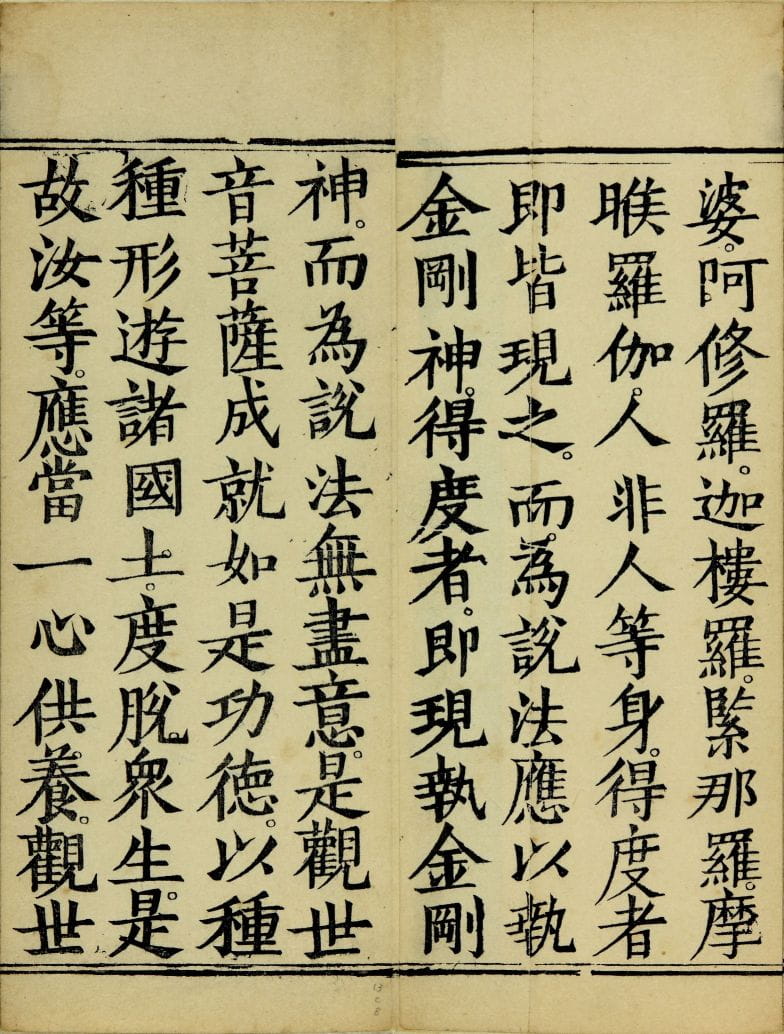 婆。呵修羅。迦樓羅。緊那羅。摩
睺羅伽。人非人等身。得度者
即皆現之。而為說法應以執
金剛神。得度者。即現執金剛
神。而為說法無盡意。是觀世
音菩薩成就如是功德。以種
種形遊諸國土。度脫衆生。是
故汝等。應當一心供養。觀世